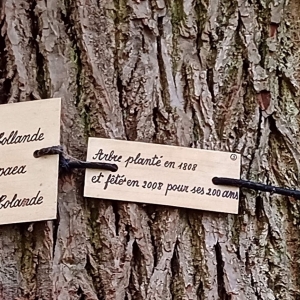 Hollande
paea
Holande
Arbre planté en 1808
et fêté en 2008 pour ses 200 ans